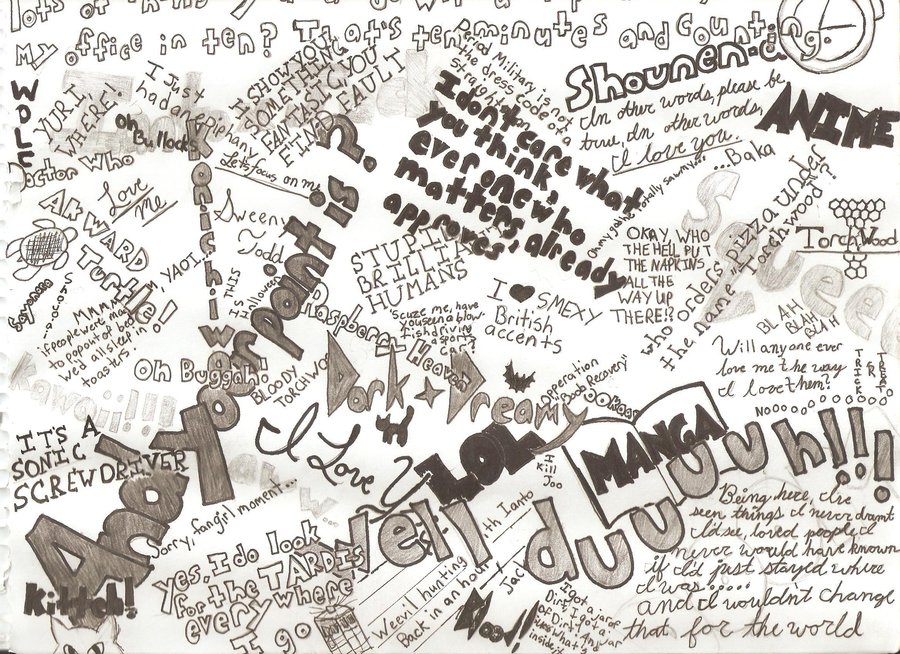 lots of
My office in ten? That's ten minutes and counting.
WOLF
YURI,
WHERE?
I Just
had an epiphany
Oh
Bullocks
I SHOW YOU
SOMETHING
FANTASTIC YOU
FIND FAULT
Military is not
the dress code of a
Straight man
Shounen-ai
In other words, please be
true, In other words,
I love you.
ANIME
I don't care what
you think,
everone who
matters already
approves,
Doctor Who
Let's focus on me
Love
Me
Konichiwa
Sweeny
Todd
AKWARD
Turtle!
Sayonara
And Your point is?
THIS
IS
Halloween
STUPID
BRILLIANT
HUMANS
...Baka
Squeee
OKAY, WHO
THE HELL PUT
THE NAPKINS
ALL THE
WAY UP
THERE!?
who orders pizza under
the name "Torchwood"?
TorchWood
Mmm, YAOI,
if people were meant
to pop out of bed
we'd all sleep in
toasters!
Raspberry Heaven
Scuze me, have
you seen a blow-
fish driving
a sports
car?
I ♥ SMEXY
British
accents
BLAH
BLAH
BLAH
Will anyone ever
love me the way
I love them?
TRICK
TREAT
Kawaii!!!
Oh Buggah!
BLOODY
TORCHWOOD
Dark Dreamy
Opperation
"Boob Recovery"
NOoooooooooooo
IT'S A
SONIC
SCREWDRIVER
I Love
LOL
MANGA
I
Kill
Joo
Well duuuuuuh!!!!
Sorry, fangirl moment...
Jack
with Ianto
Being here, I've
seen things I never dramt
I'd see, loved people, I
never would have known
if I'd just stayed where
I was.....
and I wouldn't change
that for the world
Yes, I do look
for the TARDIS
everywhere
I go
Weevil hunting
Back in an hour
Blood!
I got a jar of
Dirt I got a
jar of Dirt. And
guess what's
inside it
Kitteh!